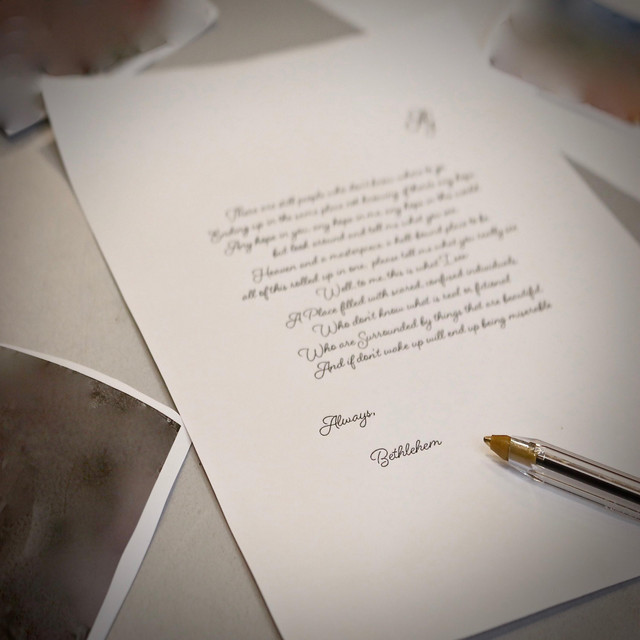 There are still people who don't know where to go
Ending up in the same place not knowing if there's any hope
Any hope in you any hope in me any hope in this world
but look around and tell me what you see
Heaven and a masterpiece a hell bound place to be
all of this rolled up in one, please tell me what you really see
Well to me this is what I see
A Place filled with scared, confused individuals
Who don't know what is real or fictional
Who are Surrounded by things that are beautiful
And if don't wake up will end up being miserable
Always,
Bethlehem